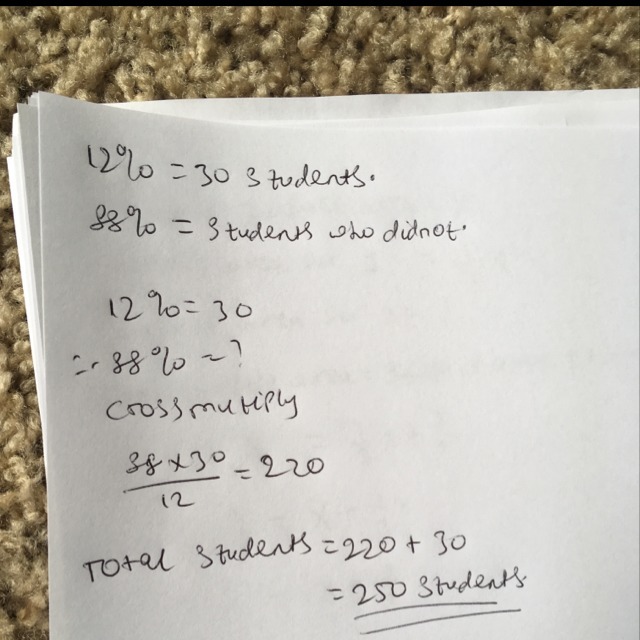 12% = 30 students.
88% = students who didnot.
12% = 30
∴ 88% = ?
crossmutiply
88 x 30 / 12 = 220
Total students = 220 + 30
= 250 students